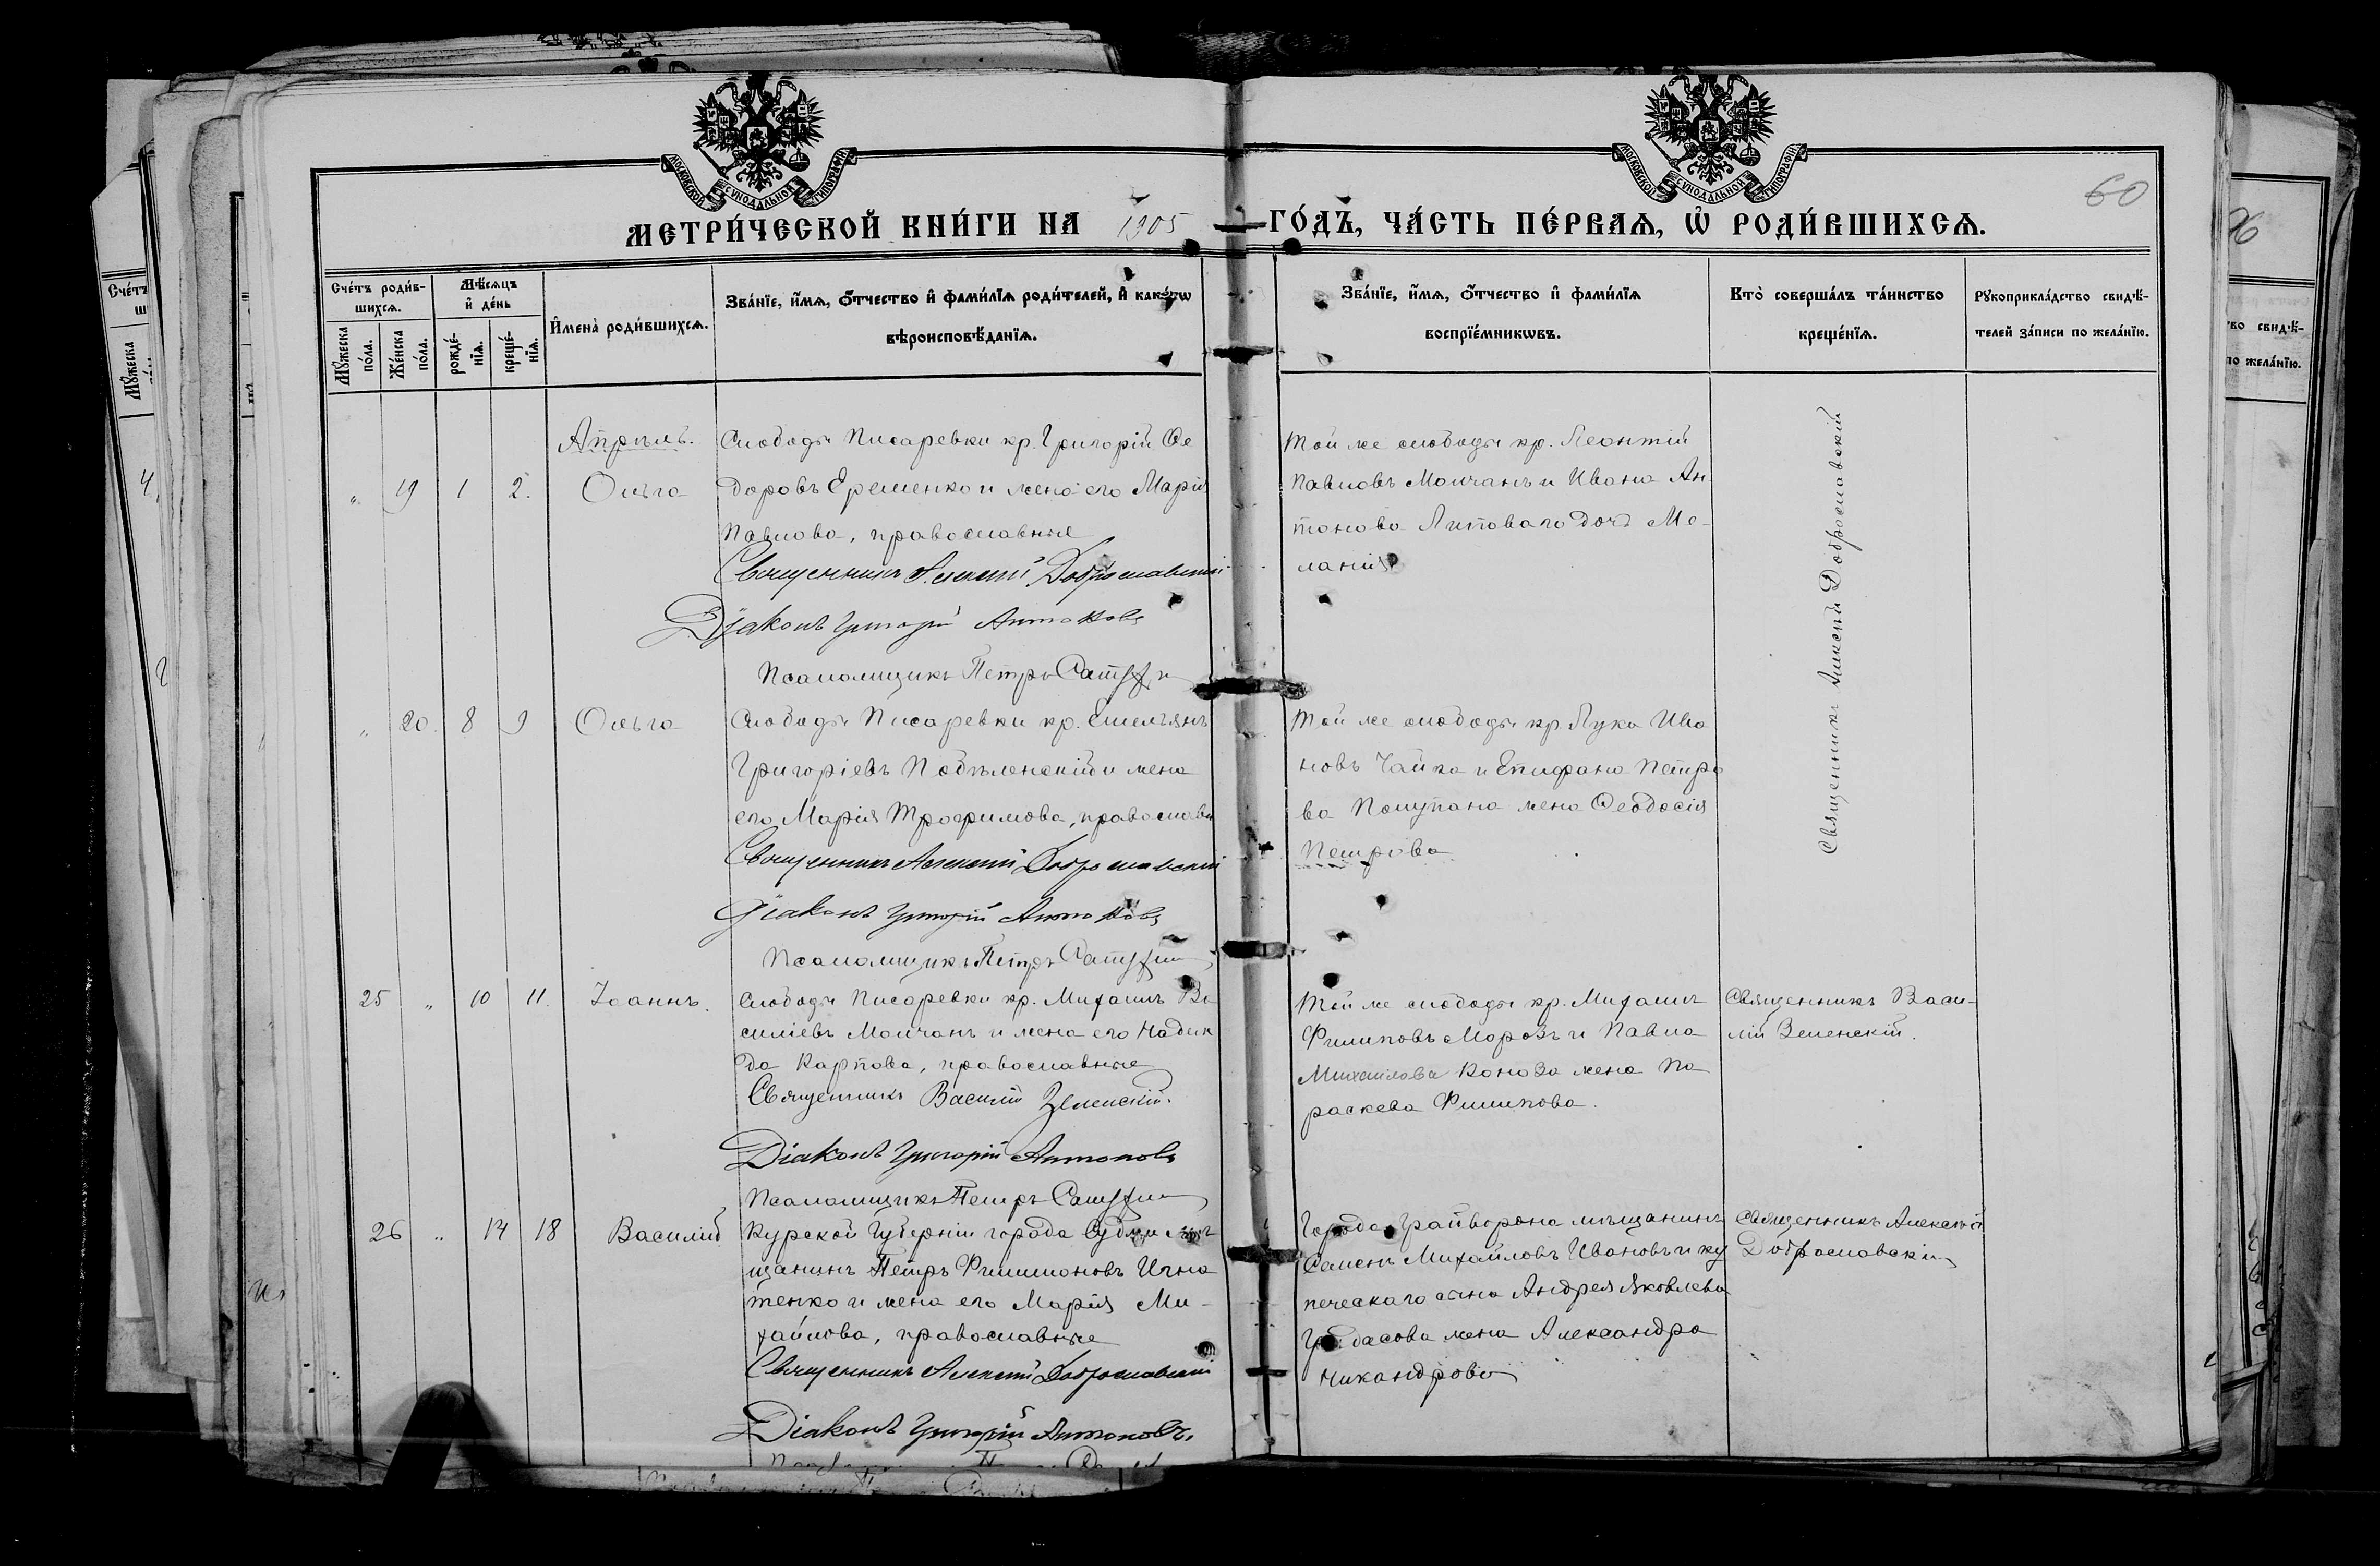 МОСКОВСКОЙ СѴНОДАЛЬНОЙ ТИПОГРАФІИ
МОСКОВСКОЙ СѴНОДАЛЬНОЙ ТИПОГРАФІИ
60
МЕТРИ́ЧЕСКОЙ КНИ́ГИ НА 1905 ГО́ДЪ, ЧА́СТЬ ПЕ́РВАѦ, Ѡ҆ РОДИ́ВШИХСѦ.
Счéтъ роди́в-
шихсѧ.
Мꙋ́жеска по́ла.
Же́нска по́ла.
Мѣ́сѧцъ
и҆ де́нь
рожде́-
нїѧ.
креще́-
нїѧ.
И҆мена̀ роди́вшихсѧ.
Зва́нїе, и҆́мѧ, ѻ҆́тчество и҆ фами́лїѧ роди́телей, и҆ како́гѡ
вѣроисповѣ́данїѧ.
Зва́нїе, и҆́мѧ, ѻ҆́тчество и҆ фами́лїѧ
воспрїе́мникѡвъ.
Кто̀ соверша́лъ та́инство
креще́нїѧ.
Рꙋкоприкла́дство свидѣ́-
телей за́писи по жела́нїю.
Апрѣль.
„ 19 1 2. Ольга
Слободы Писаревки кр. Григорій Ѳе
доровъ Еременко и жена его Марія
Павлова, православные
Священникъ Алексій Доброславскій
Діаконъ Григорій Антоновъ
Псаломщикъ Петръ
Той же слободы кр. Леонтій
Павловъ Молчанъ и Ивана Ан
тонова Липоваго дочь Ме-
ланія
Священникъ Алексій Доброславскій
„ 20. 8 9 Ольга
Слободы Писаревки кр. Емельянъ
Григоріевъ и жена
его Марія Трофимова, православн
Священникъ Алексій Доброславскій
Діаконъ Григорій Антоновъ
Псаломщикъ Петръ
Той же слободы кр. Лука Ива
новъ Чайка и Епифана Петро
ва жена Ѳеодосія
Петрова
25 „ 10 11. Іоаннъ.
Слободы Писаревки кр. Михаилъ Ва
силіевъ Молчанъ и жена его Надеж
да Карпова, православные
Священникъ Василій Зеленскій.
Діаконъ Григорій Антоновъ
Псаломщикъ Петръ
Той же слободы кр. Михаилъ
Филиповъ Морозъ и Павла
Михаилова жена Па
раскева Филипова.
Священникъ Васи-
лій Зеленскій.
26 „ 14 18 Василій
Курской Губерніи города Суджи мѣ
щанинъ Петръ Филимоновъ Игна
тенко и жена его Марія Ми-
хайлова, православные
Священникъ Алексій Доброславскій
Діаконъ Григорій Антоновъ.
Города Грайворона мѣщанинъ
Семенъ Михайловъ Ивановъ и ку
печескаго сына Андрея Яковлева
жена Александра
Никандрова
Священникъ Алексій
Доброславскій